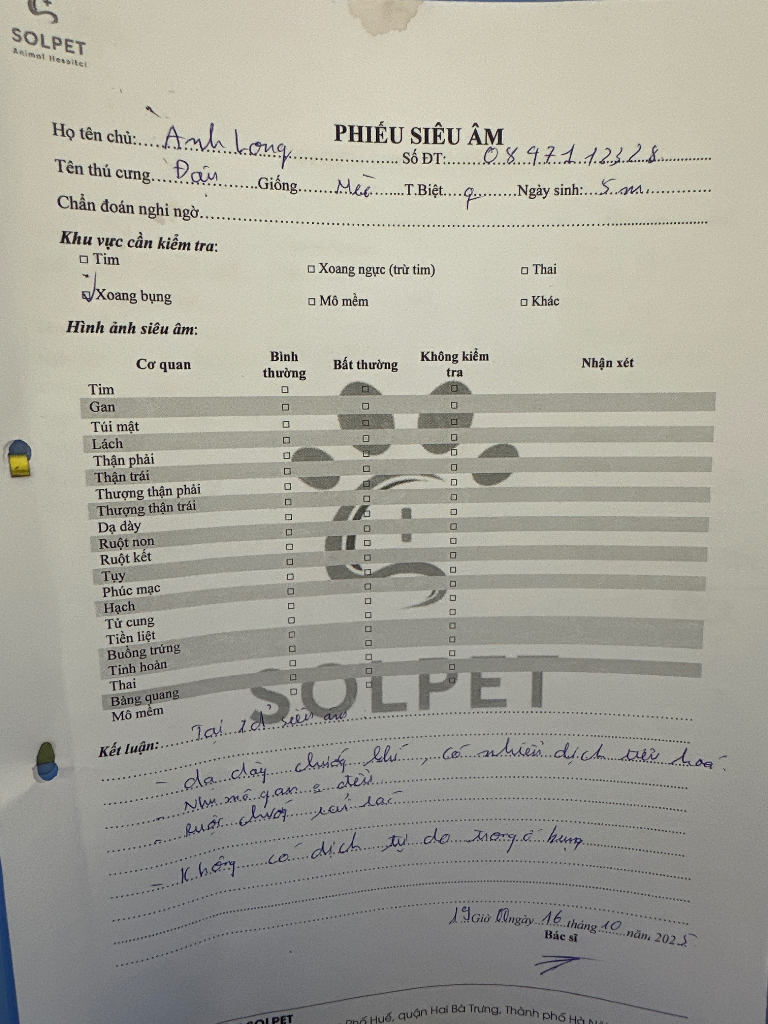 SOLPET
Animal Hospital
PHIẾU SIÊU ÂM
Họ tên chủ: Anh Long Số ĐT: 0897112328
Tên thú cưng Đậu Giống Mèo T.Biệt ♀ Ngày sinh: 5 m
Chẩn đoán nghi ngờ
Khu vực cần kiểm tra:
Tim
Xoang ngực (trừ tim)
Thai
Xoang bụng
Mô mềm
Khác
Hình ảnh siêu âm:
Cơ quan Bình thường Bất thường Không kiểm tra Nhận xét
Tim
Gan
Túi mật
Lách
Thận phải
Thận trái
Thượng thận phải
Thượng thận trái
Dạ dày
Ruột non
Ruột kết
Tụy
Phúc mạc
Hạch
Tử cung
Tiền liệt
Buồng trứng
Tinh hoàn
Thai
Bàng quang
Mô mềm
SOLPET
Kết luận: Tại siêu âm
- dạ dày chướng khí, có nhiều dịch tiêu hoá.
- Nhu mô gan đều
- ruột chướng rải rác
- Không có dịch tự do trong ổ bụng
19 Giờ 00 ngày 16 tháng 10 năm 2025
Bác sĩ
SOLPET
Phố Huế, quận Hai Bà Trưng, Thành phố Hà